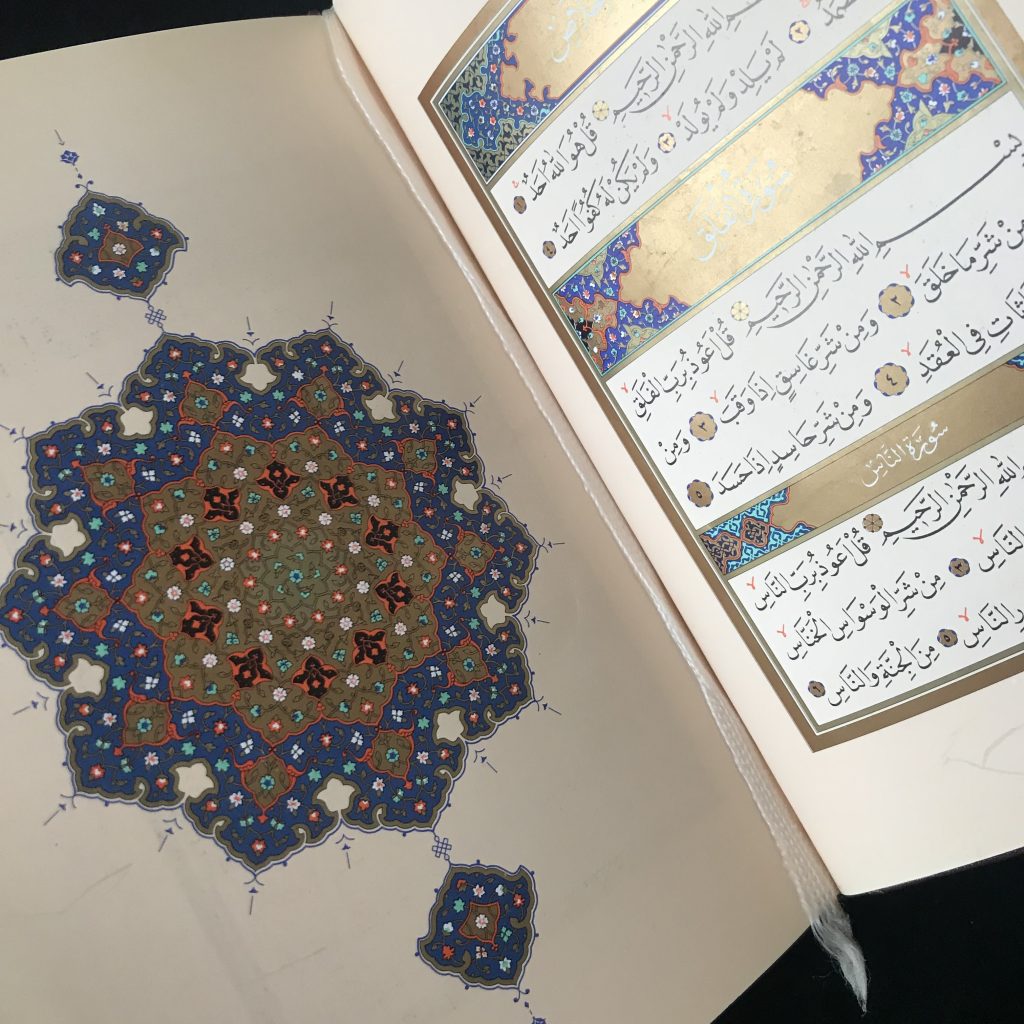 اللهِ الرَّحْمٰنِ الرَّحِيمِ قُلْ هُوَ اللهُ اَحَدٌ ١
٢ لَمْ يَلِدْ وَلَمْ يُولَدْ ٣ وَلَمْ يَكُنْ لَهُ كُفُوًا اَحَدٌ ٤
سُورَةُ الْفَلَقِ
بِسْمِ اللهِ الرَّحْمٰنِ الرَّحِيمِ قُلْ اَعُوذُ بِرَبِّ الْفَلَقِ
مِنْ شَرِّ مَا خَلَقَ ٢ وَمِنْ شَرِّ غَاسِقٍ اِذَا وَقَبَ ٣ وَمِنْ
فِي الْعُقَدِ ٤ وَمِنْ شَرِّ حَاسِدٍ اِذَا حَسَدَ ٥
سُورَةُ النَّاسِ
اللهِ الرَّحْمٰنِ الرَّحِيمِ قُلْ اَعُوذُ بِرَبِّ النَّاسِ
النَّاسِ ٣ مِنْ شَرِّ الْوَسْوَاسِ الْخَنَّاسِ
النَّاسِ ٥ مِنَ الْجِنَّةِ وَالنَّاسِ ٦